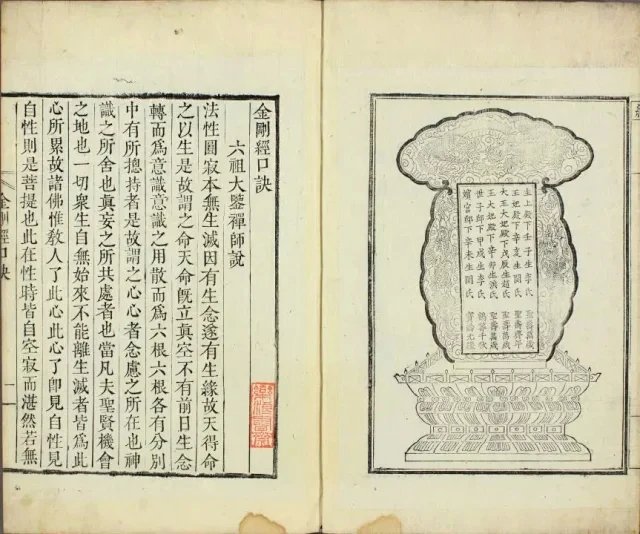 主上殿下壬子生李氏 聖壽萬歲
王妃殿下辛亥生閔氏 聖壽齊年
大王大妃殿下戊辰生趙氏 聖壽萬歲
王大妃殿下辛卯生洪氏 聖壽萬歲
世子邸下甲戌生李氏 鶴壽千秋
嬪宮邸下辛未生閔氏
金剛經口訣
六祖大鑒禪師說
法性圓寂本無生滅因有生念遂有生緣故天得命
之以生是故謂之命天命旣立真空不有前日生念
轉而爲意識意識之用散而爲六根六根各有分別
中有所摠持者是故謂之心心者念慮之所在也神
識之所舍也真妄之所共處者也當凡夫聖賢機會
之地也一切衆生自無始來不能離生滅者皆爲此
心所累故諸佛惟敎人了此心此心了卽見自性見
自性則是菩提也此在性時皆自空寂而湛然若無
金剛經口訣
一